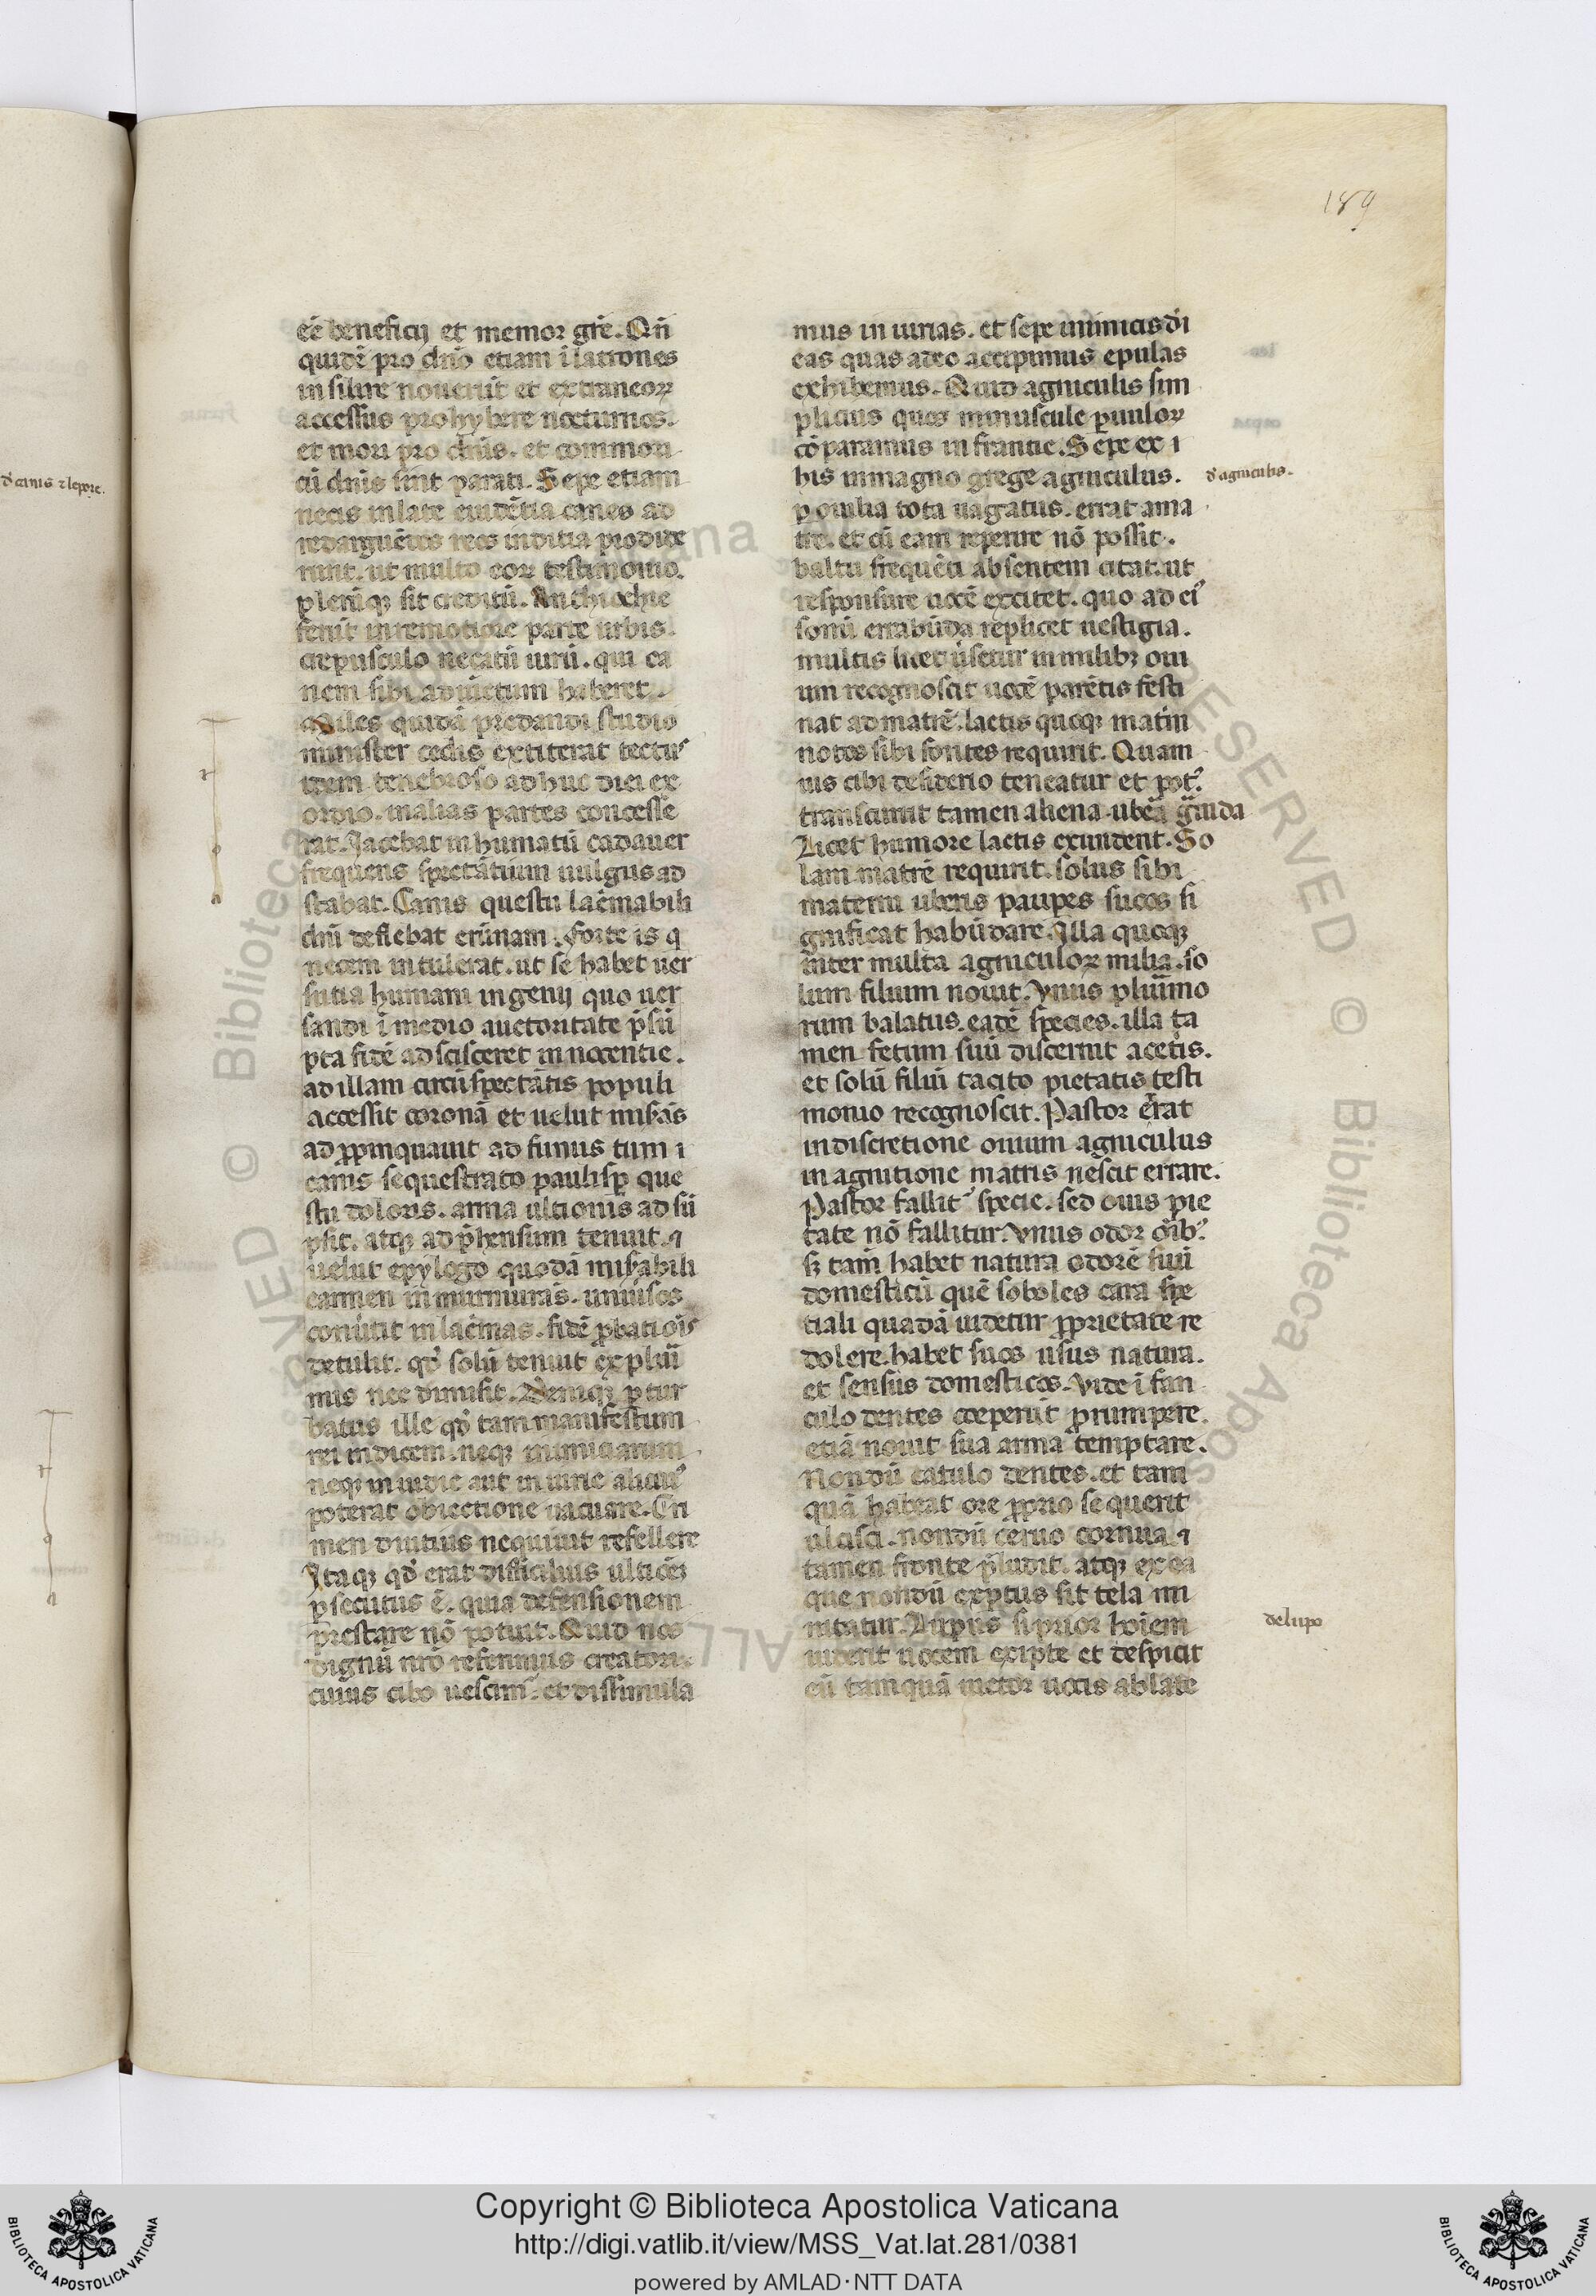 189
eē beneficij et memor gr̄e. Qn̄
quidē pro dn̄o etiam i latrones
in silire nouerūt et extraneoꝝ
accessus prohybere nocturnos.
et mori pro dn̄is. et commori
cū dn̄is sint parati. Sepe etiam
necis inlate euidētia canes ad
redarguētes reos inditia prodide
runt. ut multo eoꝝ testimonio.
plerūqꝫ sit creditū. Anthiochie
ferūt in remotiore parte urbis.
crepusculo necatū uirū. qui ca
nem sibi adiūctum haberet.
Miles quidā predandi studio
minister cedis extiterat tectus
idem tenebroso ad huc diei ex
ordio. in alias partes concesse
rat. Jacebat in humatū cadauer
frequens spectātium uulgus ad
stabat. Canis questu lac̄mabili
dn̄i deflebat erūnam. Forte is q
necem intulerat. ut se habet uer
sutia humani ingenij quo uer
sandi ī medio auctoritate p̄sū
pta fidē ad scisceret innocentie.
ad illam circūspectātis populi
accessit coronā et uelut mis̄ās
ad ꝓpinquauit ad funus tum i
canis sequestrato paulisꝑ que
stu doloris. arma ultionis ad sū
psit. atqꝫ ad p̄hensum tenuit. ⁊
uelut epylogo quodā mis̄abili
carmen in murmurās. uniūsos
conūtit in lac̄mas. fidē ꝓbatiōi
detulit. qd̓ solū tenuit ex plurī
mis nec dimisit. Deniqꝫ ꝑtur
batus ille qd̓ tam manifestum
rei indicem. neqꝫ inimicitiarum
neqꝫ inuidie aut iniurie alicuiꝰ
poterat obiectione uacuare. Cri
men diutius nequiuit refellere
Itaqꝫ qd̓ erat difficilius ultōeꝫ
ꝑsecutus ē. quia defensionem
prestare nō potuit. Quid nos
dignū nr̄o referimus creatori.
cuius cibo uescimꝰ. et dissimula
mus in iurias. et sepe inimicis di
eas quas a deo accipimus epulas
exhibemus. Quid agniculis sim
plicius quos minuscule ꝑuuloꝝ
cōparamus in frantie. Sepe ex i
his in magno grege agniculus.
ꝑ ouilia tota uagatus. errat a ma
tre. et cū eam reperire nō possit.
baltu frequēti absentem citat. ut
responsure uocē excitet. quo ad eiꝰ
sonū errabūda replicet uestigia.
multis licet ūsetur in milibꝫ oui
um recognoscit uocē parētis festi
nat ad matrē. lactis quoqꝫ mat̄ni
notos sibi fontes requirit. Quam
uis cibi desiderio teneatur et potꝰ.
transcurrit tamen aliena ubēa g̈uida
Licet humore lactis exundent. So
lam matrē requirit. solus sibi
materni uberis pauꝑes sucos si
gnificat habūdare. Illa quoqꝫ
inter multa agniculoꝝ milia. so
lum filium nouit. Vnus plurimo
rum balatus. eadē species. illa ta
men fetum suū discernit a cet̄is.
et solū filiū tacito pietatis testi
monio recognoscit. Pastor errat
in discretione ouium agniculus
in agnitione matris nescit errare.
Pastor fallitꝰ specie. sed ouis pie
tate nō fallitur. Vnus odor ōibꝰ.
sꝫ tam̄ habet natura odorē suū
domesticū quē soboles cara spe
tiali quadā uidetur ꝓprietate re
dolere. habet suos usus natura.
et sensus domesticos. Vide ī fan
culo dentes ceperūt ꝓrumpere.
etiā nouit sua arma temptare.
Nondū catulo dentes. et tam
quā habeat ore ꝓprio se querit
ulcisci. nondū ceruo cornua ⁊
tamen fronte p̄ludit. atqꝫ ex ea
que nondū exꝑtus sit tela mi
nitatur. Lupus si prior hoīem
uiderit uocem eripit et despicit
eū tamquā uictor uocis ablate
d̓ canis ⁊ lepore.
d̓ agniculis.
de lupo
Copyright © Biblioteca Apostolica Vaticana
http://digi.vatlib.it/view/MSS_Vat.lat.281/0381
powered by AMLAD·NTT DATA
BIBLIOTECA APOSTOLICA VATICANA
BIBLIOTECA APOSTOLICA VATICANA